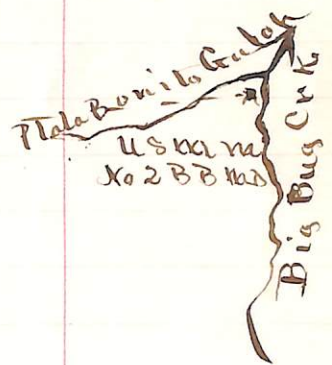 Plata Bonito Gulch
U S MM
No 2 B B MD
Big Bug Crk